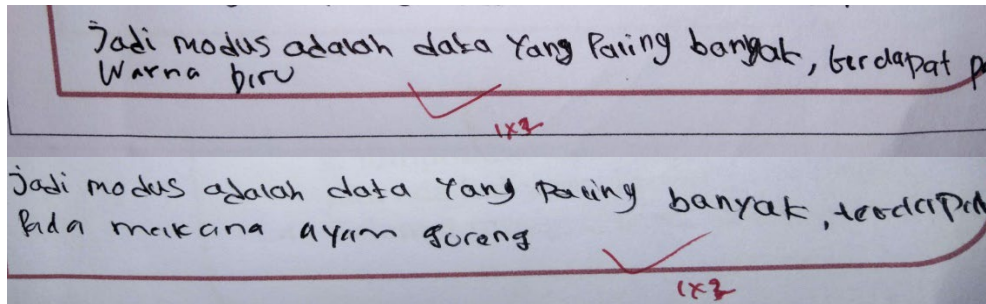 Jadi modus adalah data Yang Paling banyak, terdapat
Warna biru
Jadi modus adalah data Yang Paling banyak, terdapat
Pada makana ayam goreng